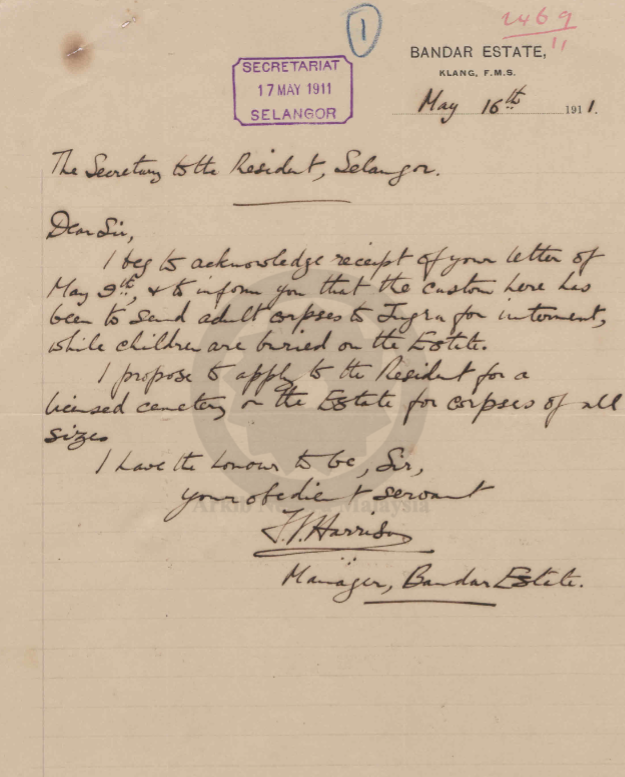 2469
11
1
BANDAR ESTATE,
KLANG, F.M.S.
SECRETARIAT
17 MAY 1911
SELANGOR
May 16th 1911.
The Secretary to the Resident, Selangor.
Dear Sir,
I beg to acknowledge receipt of your letter of
May 9th, & to inform you that the custom here has
been to send adult corpses to Jugra for interment,
while children are buried on the Estate.
I propose to apply to the Resident for a
licensed cemetery on the Estate for corpses of all
sizes
I have the honour to be, Sir,
your obedient servant
Harrison
Manager, Bandar Estate.
Arkib Negara Malaysia